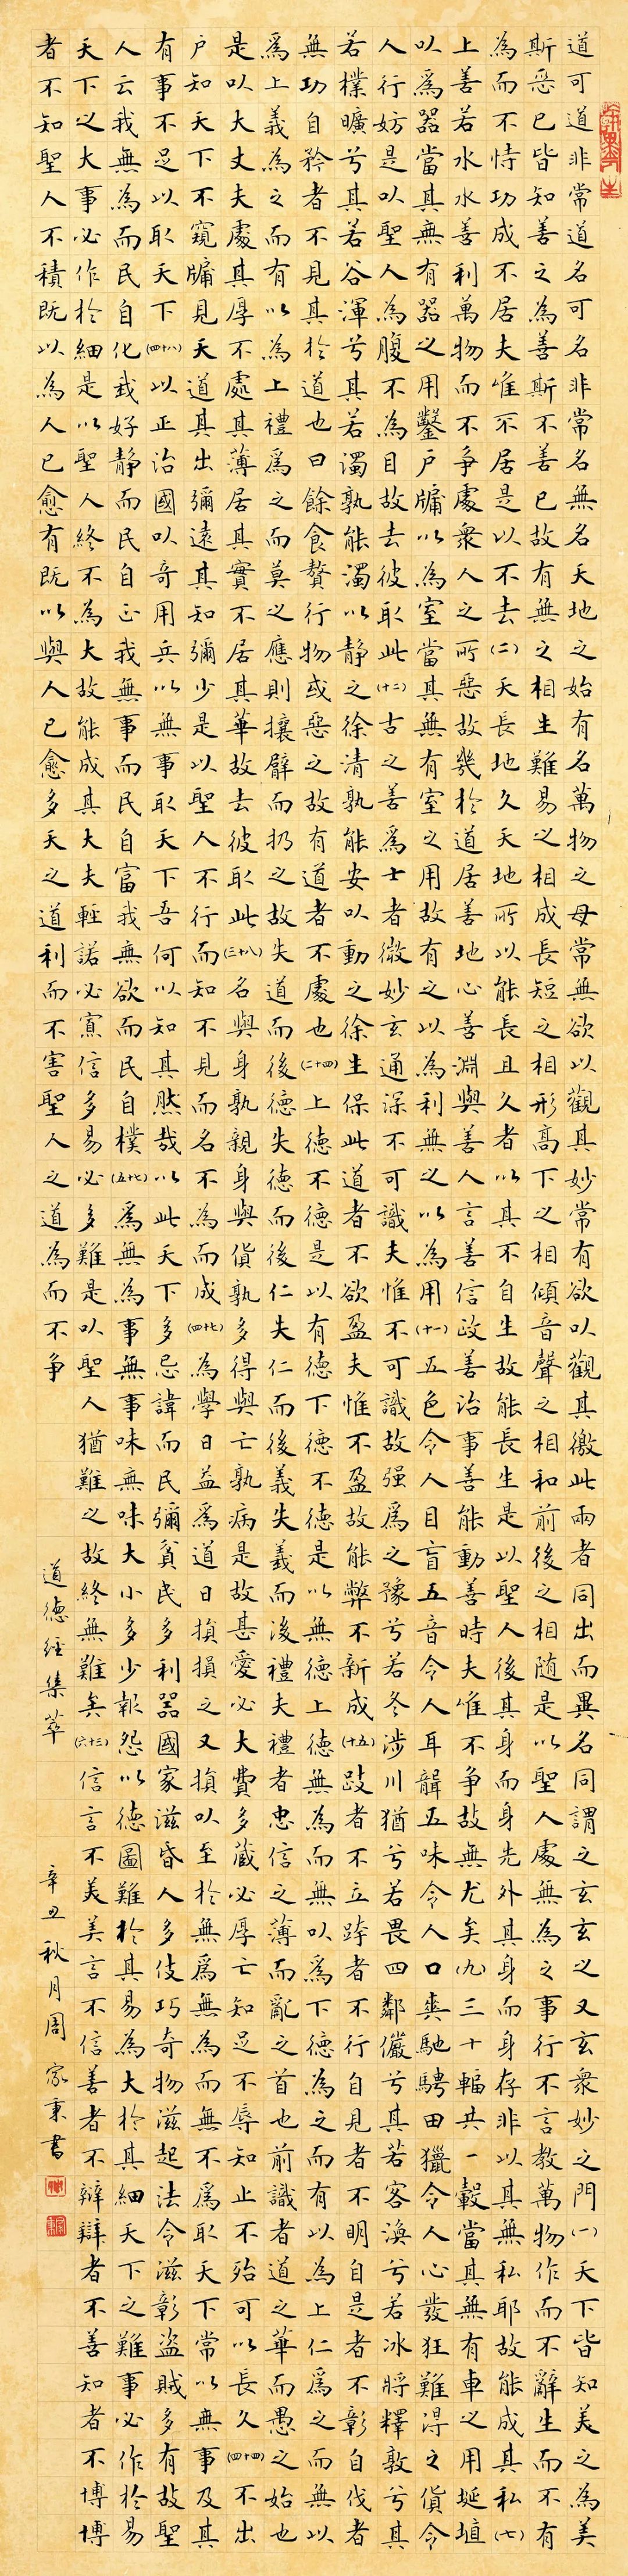 道可道非常道名可名非常名無名天地之始有名萬物之母常無欲以觀其妙常有欲以觀其徼此兩者同出而異名同謂之玄玄之又玄衆妙之門(一)天下皆知美之為美
斯惡已皆知善之為善斯不善已故有無之相生難易之相成長短之相形高下之相傾音聲之相和前後之相随是以聖人處無為之事行不言教萬物作而不辭生而不有
為而不恃功成不居夫唯不居是以不去(二)天長地久天地所以能長且久者以其不自生故能長生是以聖人後其身而身先外其身而身存非以其無私耶故能成其私(七)
上善若水水善利萬物而不争處衆人之所惡故幾於道居善地心善淵與善人言善信政善治事善能動善時夫唯不争故無尤矣(九)三十輻共一轂當其無有車之用埏埴
以爲器當其無有器之用鑿户牖以為室當其無有室之用故有之以為利無之以為用(十一)五色令人目盲五音令人耳聾五味令人口爽馳騁田獵令人心發狂難得之貨令
人行妨是以聖人為腹不為目故去彼取此(十二)古之善爲士者微妙玄通深不可識夫惟不可識故强爲之豫兮若冬涉川猶兮若畏四鄰儼兮其若客渙兮若冰將釋敦兮其
若樸曠兮其若谷渾兮其若濁孰能濁以静之徐清孰能安以動之徐生保此道者不欲盈夫惟不盈故能弊不新成(十五)跂者不立跨者不行自見者不明自是者不彰自伐者
無功自矜者不見其於道也曰餘食贅行物或惡之故有道者不處也(二十四)上德不德是以有德下德不德是以無德上德無為而無以爲下德為之而有以為上仁爲之而無以
爲上義為之而有以為上禮爲之而莫之應則攘臂而扔之故失道而後德失德而後仁失仁而後義失義而後禮夫禮者忠信之薄而亂之首也前識者道之華而愚之始也
是以大丈夫處其厚不處其薄居其實不居其華故去彼取此(三十八)名與身孰親身與貨孰多得與亡孰病是故甚愛必大費多藏必厚亡知足不辱知止不殆可以長久(四十四)不出
户知天下不窺牖見天道其出彌遠其知彌少是以聖人不行而知不見而名不為而成(四十七)為學日益爲道日損損之又損以至於無爲無為而無不爲取天下常以無事及其
有事不足以取天下(四十八)以正治國以奇用兵以無事取天下吾何以知其然哉以此天下多忌諱而民彌貧民多利器國家滋昏人多伎巧奇物滋起法令滋彰盜賊多有故聖
人云我無為而民自化我好静而民自正我無事而民自富我無欲而民自樸(五十七)爲無為事無事味無味大小多少報怨以德圖難於其易為大於其細天下之難事必作於易
天下之大事必作於細是以聖人終不為大故能成其大夫輕諾必寡信多易必多難是以聖人猶難之故終無難矣(六十三)信言不美美言不信善者不辯辯者不善知者不博博
者不知聖人不積既以為人已愈有既以與人已愈多天之道利而不害聖人之道為而不争
道德經集萃 辛丑秋月周家秉書